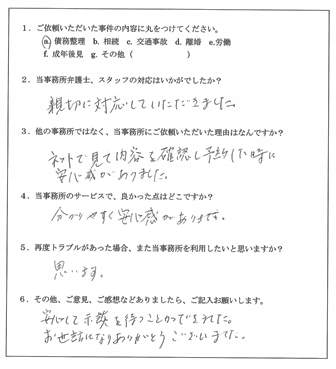 1．ご依頼いただいた事件の内容に丸をつけてください。
a. 債務整理　b. 相続　c. 交通事故　d. 離婚　e.労働
f. 成年後見　g. その他（　　　　　　　）
2．当事務所弁護士、スタッフの対応はいかがでしたか？
親切に対応していただきました。
3．他の事務所ではなく、当事務所にご依頼いただいた理由はなんですか？
ネットで見て内容を確認し予約した時に
安心感がありました。
4．当事務所のサービスで、良かった点はどこですか？
分かりやすく安心感があります。
5．再度トラブルがあった場合、また当事務所を利用したいと思いますか？
思います。
6．その他、ご意見、ご感想などありましたら、ご記入お願いします。
安心して示談を待つことができました。
お世話になりありがとうございました。